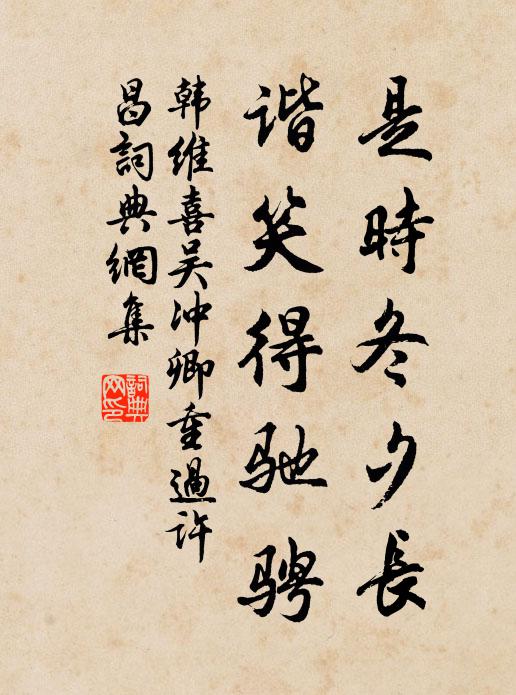 是時冬夕長
谐笑得驰骋
韩維喜吴冲卿重過許
昌詞典網集
詞典
网印